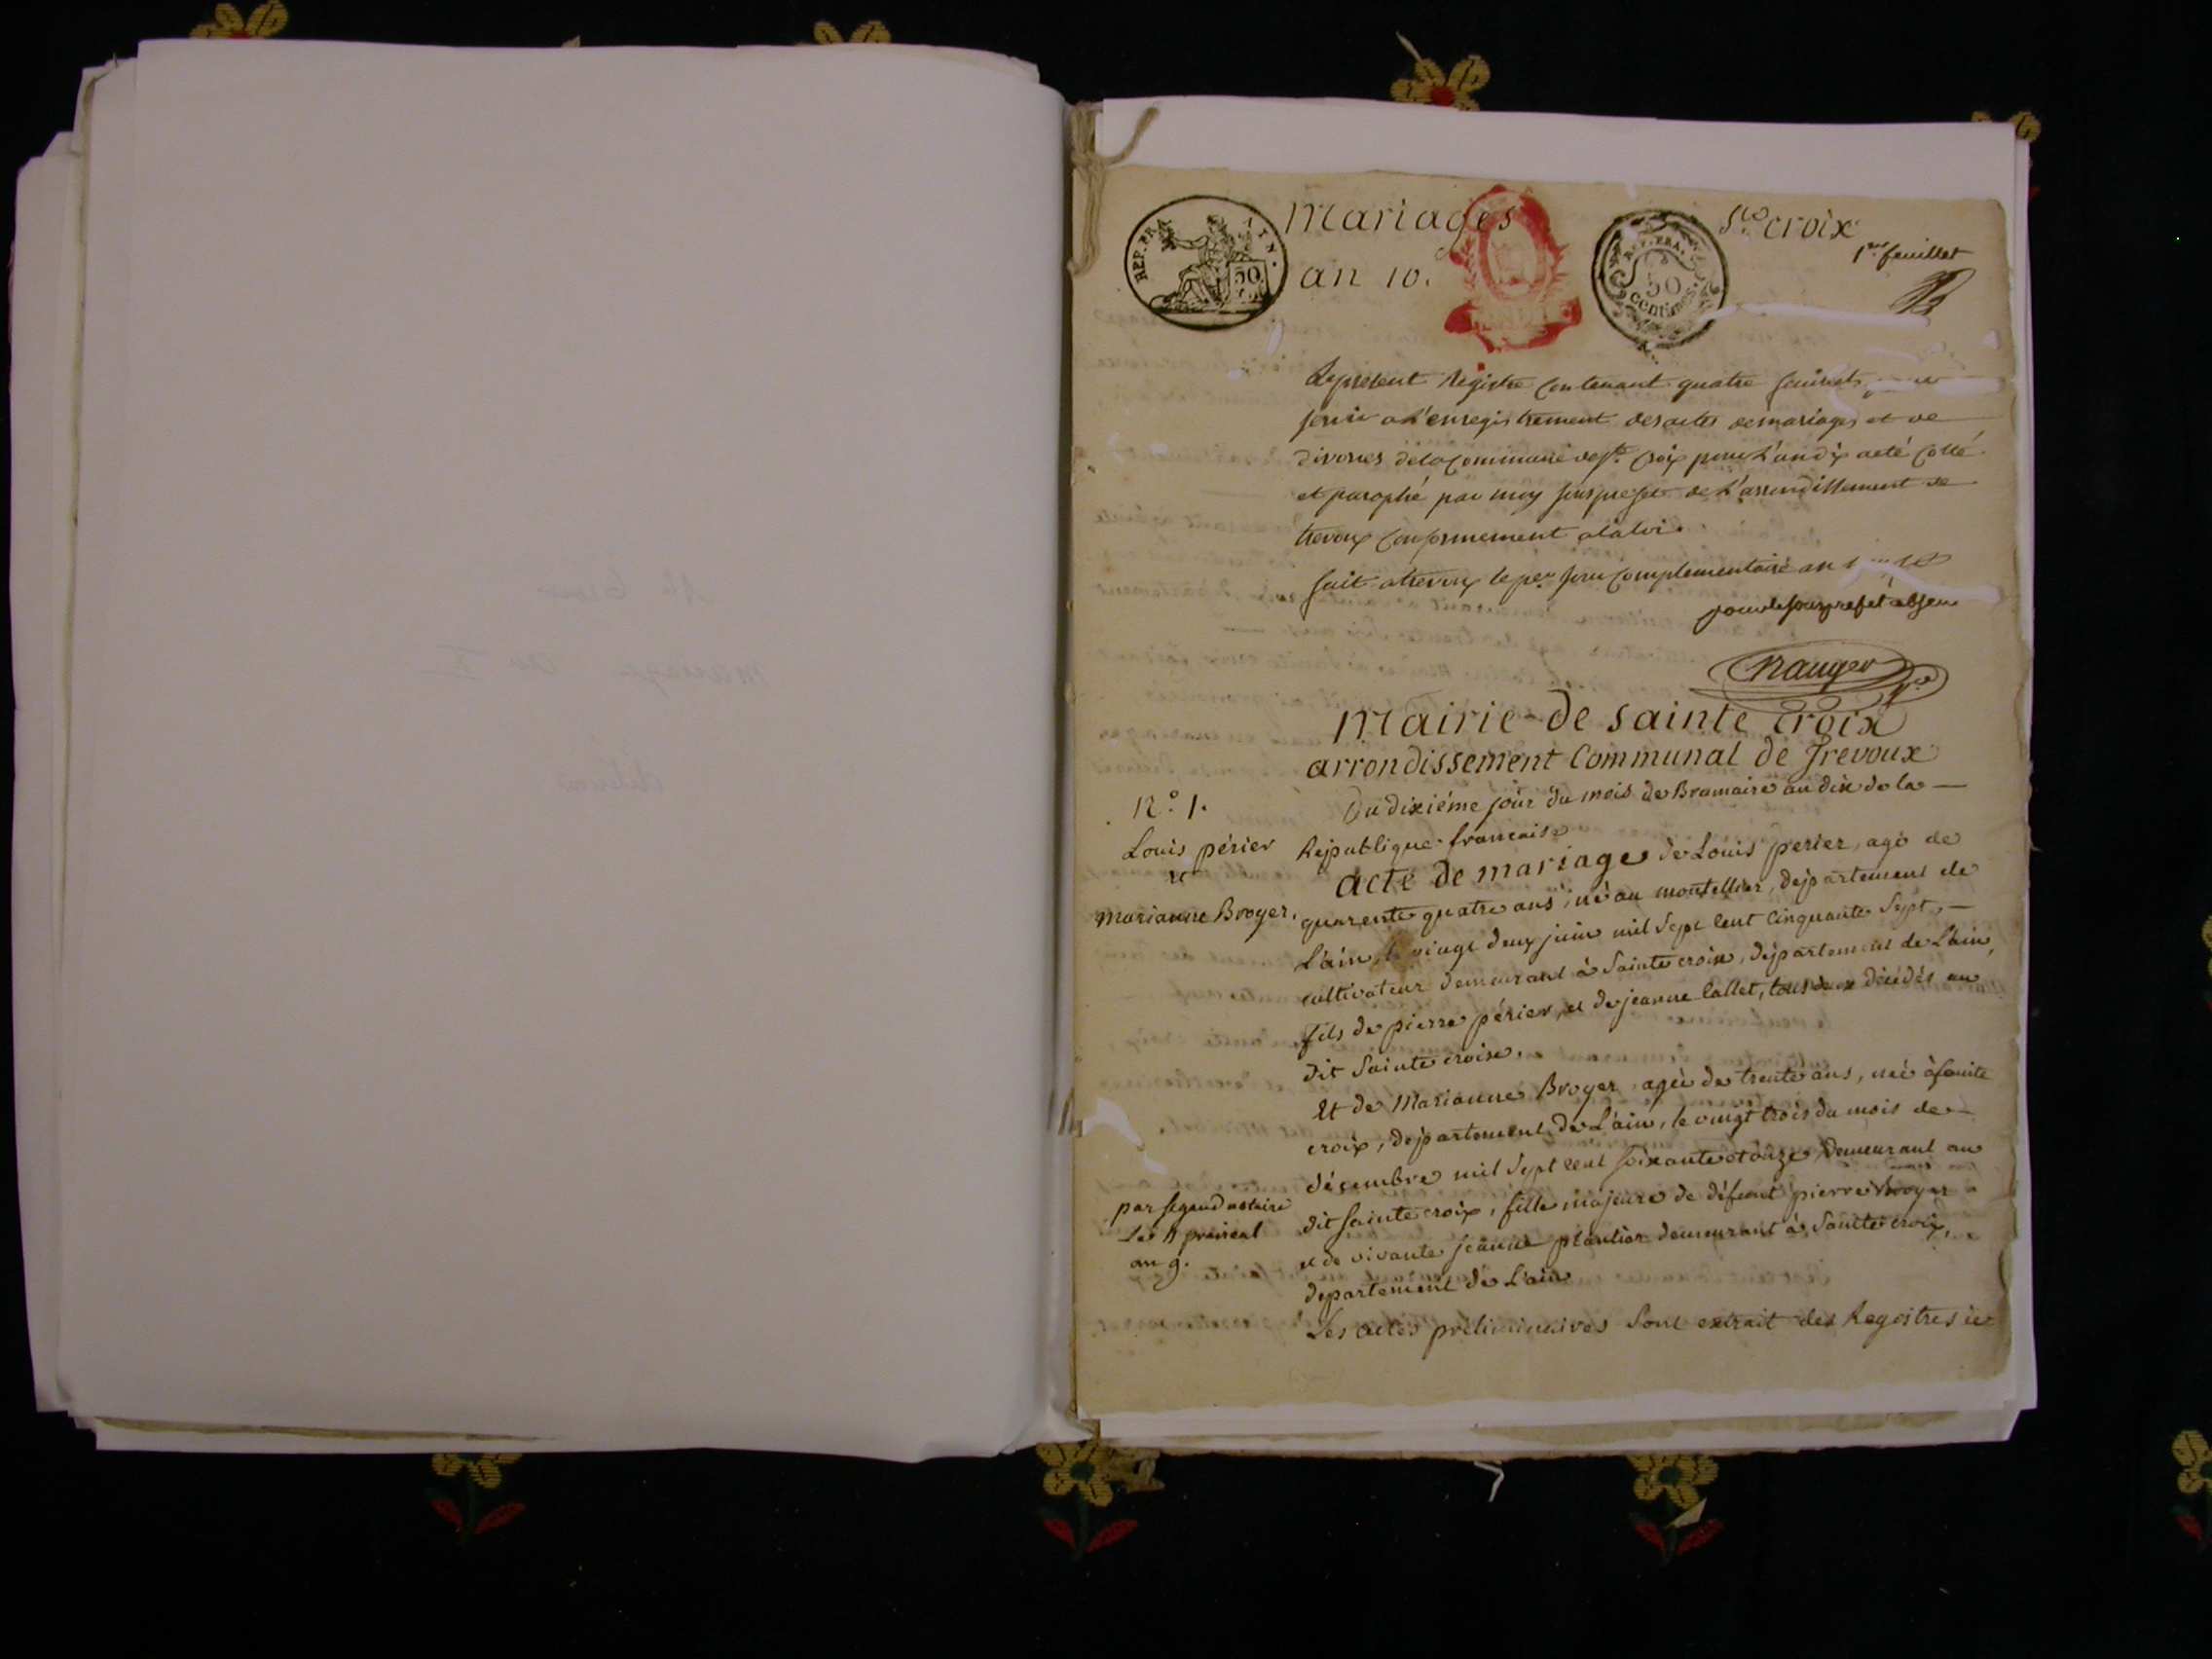 Mariages
an 10.
REP. FRA
AIN.
50
REP. FRA.
50
centimes
Ste croix
1er feuillet
Le present Registre contenant quatre feuillets
servir a L'enregistrement des actes de mariages et de
divorces de la Commune de Ste Croix pour L'an dix a été Cotté
et paraphé par moy sousprefet de L'arrondissement de
trevoux Conformement a la loi.
fait a trevoux le per jour Complementaire an
pour le sousprefet absen
nauger
Mairie de sainte Croix
arrondissement Communal de Trevoux
N.º 1.
Louis périer
et
Marianne Broyer.
Du dixiéme jour du mois de Brumaire an dix de la
Republique francaise
acte de mariage de Louis perier, agé de
quarente quatre ans, né au montellier, departement de
L'ain, le vingt deux juin mil Sept Cent Cinquante Sept,
cultivateur demeurant à Sainte croix, département de L'ain,
fils de pierre périer, et de jeanne Callet, tous deux décédés au
dit Sainte croix.
Et de Marianne Broyer agée de trente ans, née à Sainte
croix, département de L'ain, le vingt trois du mois de
décembre mil Sept Cent Soixante et onze, demeurant au
dit Sainte croix, fille majeure de défunt pierre Broyer
et de vivante jeanne plantier demeurant à Sainte croix,
departement de L'ain
par segaud notaire
Le prairial
an 9.
Les actes préliminaires Sont extrait des Registres